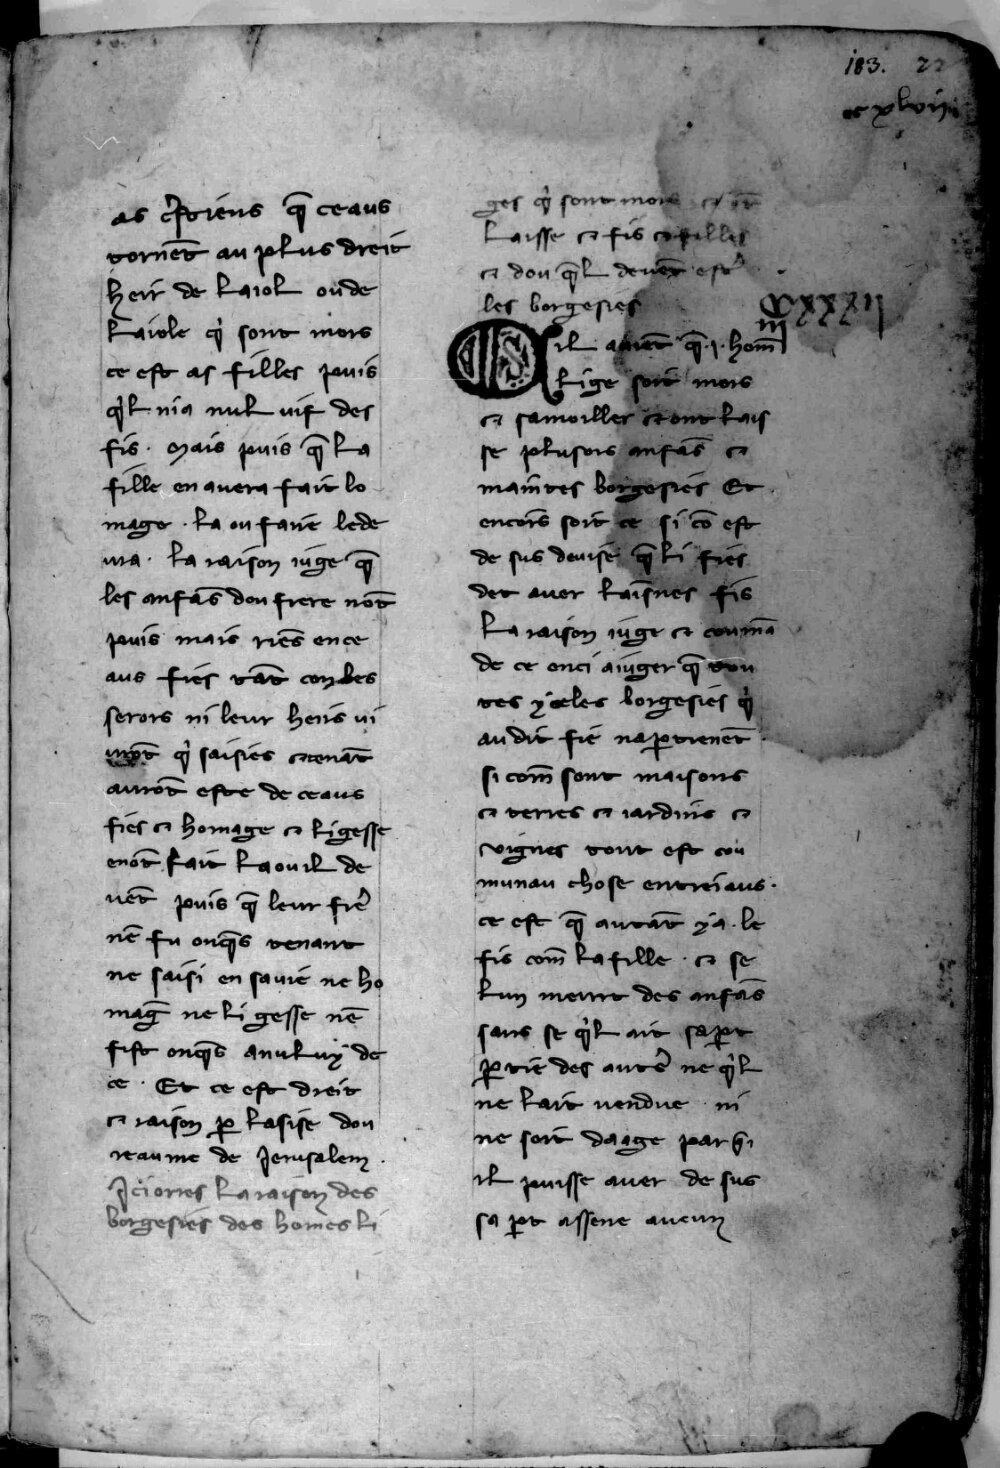 183. 22
ccxlviii
as cr̄tiens q̄ ceaus
tornēt au plus dreit
heir de laiol ou de
laiole q̇ sont mors
ce est as filles puis
q̇l nia nul uif des
fis · Mais puis q̄ la
fille en auera fait lo
mage · la ou faire le de
ura · la raison iuge q̄
les anfās dou frere nōt
puis mais riēs en ce
aus fies tāt con les
serors ni leur heirs ui
urōt q̇ saisies ⁊ tenāt
aurōt este de ceaus
fies ⁊ homage ⁊ ligesse
enōt fait la ou il de
uēt puis q̄ leur frē
nē fu onq̄s tenant
ne saisi en sa uie ne ho
maḡ ne ligesse nē
fist onq̄s a nuluy de
ce · Et ce est dreit
⁊ raison ꝑ lasise dou
reaume de Jerusalem ·
Ici orres la raison des
borgesies des homes li
ges q̇ sont mors ⁊ ōt
laisse ⁊ fis ⁊ filles
⁊ dou q̄l deuēt estr̄
les borgesies
CXXXXII
III
Sil auient q̄ · i · hom̄
lige soit mors
⁊ sa moiller ⁊ ont lais
se plusors anfās ⁊
maintes borgesies Et
encors soit ce si cō est
de sus deuise q̄ li fies
det auer laisnes fis
La raison iuge ⁊ coumā
de ce enci a iuger q̄ tou
tes yceles borgesies q̇
au dit fie naꝑtienēt
si com̄ sont maisons
⁊ terres ⁊ iardins ⁊
vignes tout est cou
munau chose entreiaus ·
ce est q̄ autāt ya · le
fis com̄ la fille · ⁊ se
lun meurt des anfās
sans se q̇l ait sa ꝑt
ꝑtie des autr̄ ne q̇l
ne lait uendue ni
ne soit daage par q̇
il puisse auer de sus
sa ꝑt assene aucun